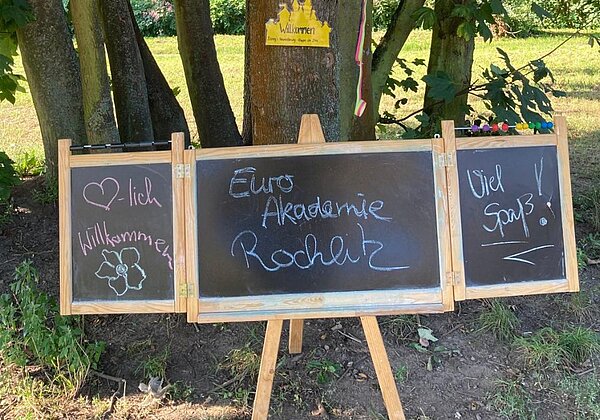 Willkommen
♡-lich
Willkommen
Euro
Akademie
Rochlitz
Viel
Spaß!